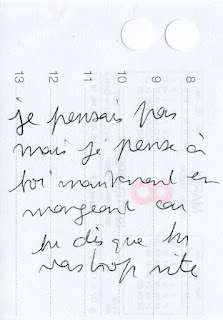 8
9
10
11
12
13
je pensais pas
mais je pense à
toi maintenant en
mangeant car
tu dis que tu
vas trop vite